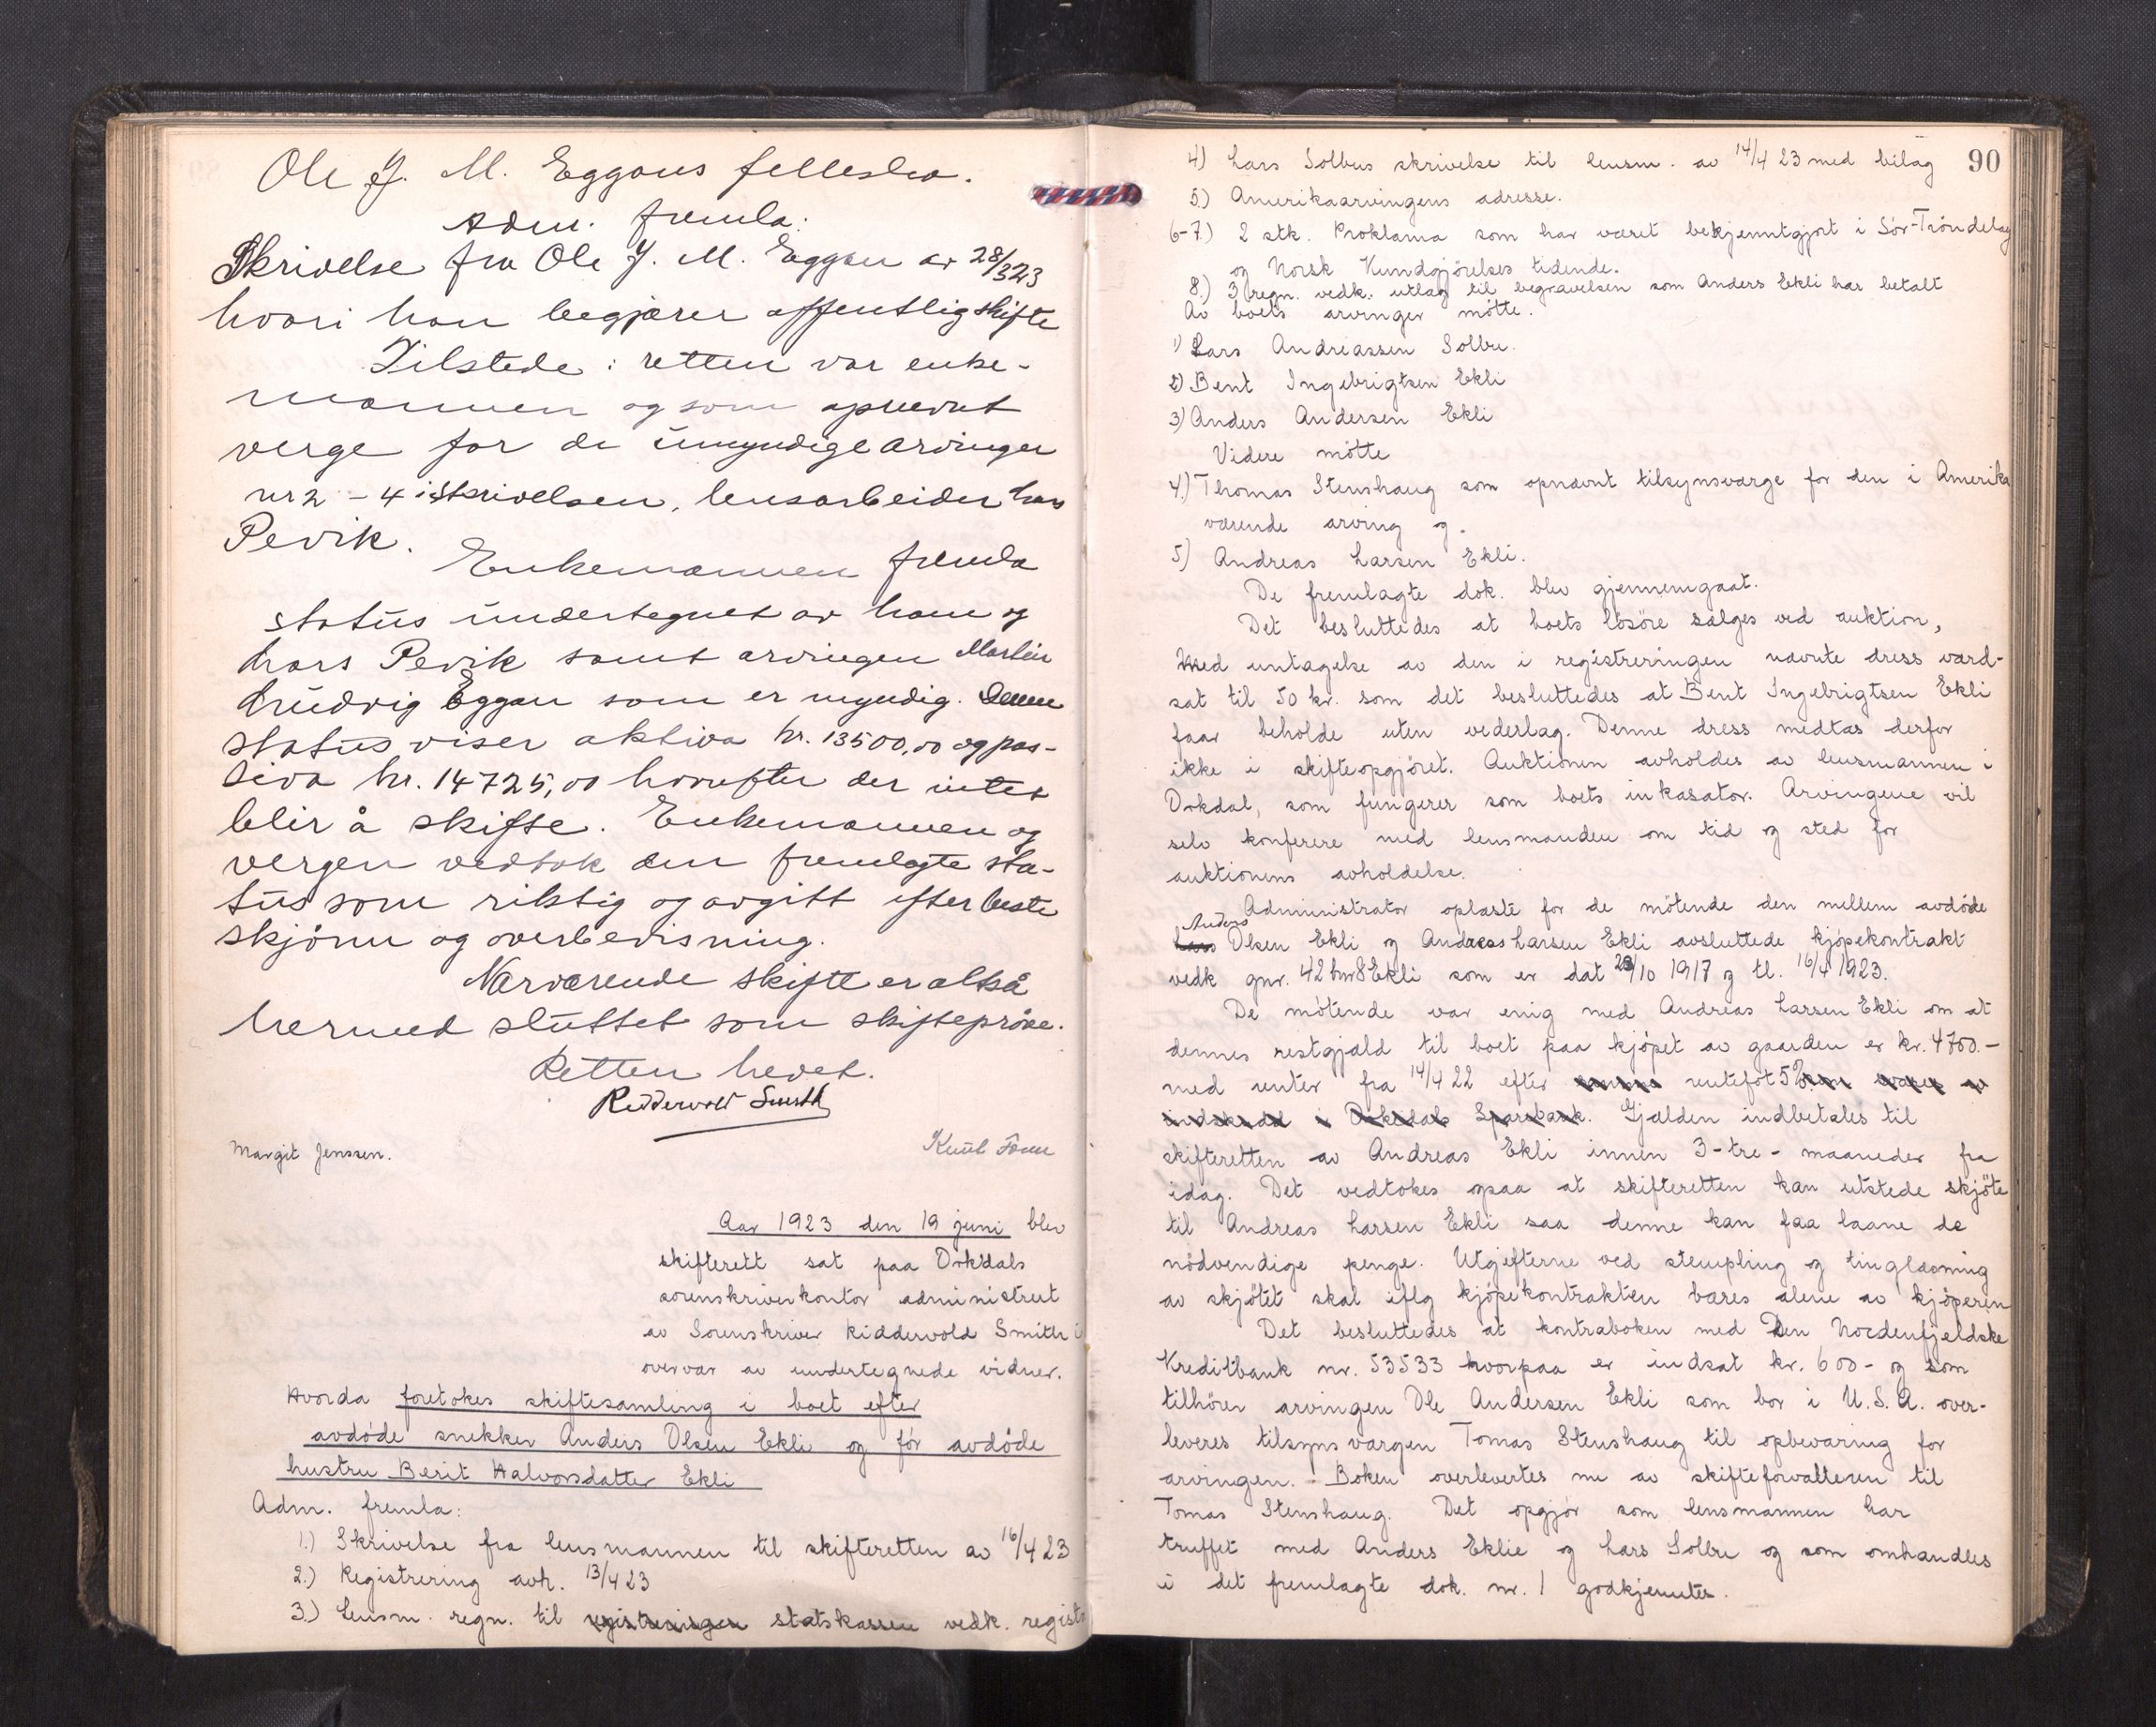 Ole J. M. Eggans fellesbo.
Adm. fremla:
Skrivelse fra Ole J. M. Eggan av 28/3 23
hvori han begjærer offentlig skifte
Tilstede i retten var enke-
mannen og som opnevnt
verge for de umyndige arvinger
nr 2 - 4 i skrivelsen, lensarbeider Lars
Pevik.
Enkemannen fremla
status undertegnet av ham og
Lars Pevik samt arvingen Martin
Ludvig Eggan som er myndig. Denne
status viser aktiva kr. 13500,00 og pas-
siva kr. 14725,00 hvorefter der intet
blir å skifte. Enkemannen og
vergen vedtok den fremlagte sta-
tus som riktig og avgitt efter beste
skjönn og overbevisning.
Nærværende skifte er altså
hermed sluttet som skifteprøve.
Retten hevet.
Ridderwold Smith
Margit Jenssen. Knut
Aar 1923 den 19 juni blev
skifterett sat paa Orkdals
sorenskriverkontor administrert
av Sorenskriver Ridderwold Smith i
overvær av undertegnede vidner.
Hvorda foretokes skiftesamling i boet efter
avdöde snekker Anders Olsen Ekli og för avdöde
hustru Berit Halvorsdatter Ekli
Adm. fremla:
1.) Skrivelse fra lensmannen til skifteretten av 16/4 23
2.) Registrering avh. 13/4 23
3.) Lensm. regn. til registreringen statskassen vedk. registr
4) Lars Solbus skrivelse til lensm. av 14/4 23 med bilag 90
5.) Amerikaarvingens adresse.
6-7) 2 stk. Proklama som har været bekjenntgjort i Sör-Tröndelag
og Norsk Kundgjörelses tidende.
8.) 3 regn. vedk. utlæg til begravelsen som Anders Ekli har betalt
Av boets arvinger mötte.
1) Lars Andreassen Solbu.
2) Bent Ingebrigtsen Ekli
3) Anders Andersen Ekli
Videre mötte
4.) Thomas Stenshaug som opnævnt tilsynsværge for den i Amerika
værende arving og
5) Andreas Larsen Ekli.
De fremlagte dok. blev gjennemgaat.
Det besluttedes at boets lösöre sælges ved auktion,
med untagelse av den i registreringen nævnte dress værd-
sat til 50 kr. som det besluttedes at Bent Ingebrigtsen Ekli
faar beholde uten vederlag. Denne dress medtas derfor
ikke i skifteopgjöret. Auktionen avholdes av lensmannen i
Orkdal, som fungerer som boets inkasator. Arvingene vil
selv konferere med lensmanden om tid og sted for
auktionens avholdelse.
Administrator oplæste for de mötende den mellem avdöde
Anders
Lars Olsen Ekli og Andreas Larsen Ekli avsluttede kjöpekontrakt
vedk gnr. 42 bnr 8 Ekli som er dat 23/10 1917 og tl. 16/4 1923.
De mötende var enig med Andreas Larsen Ekli om at
dennes restgjæld til boet paa kjöpet av gaarden er kr. 4700.-
med renter fra 14/4 22 efter rentefot 5%
indskudd i Orkedals Sparebank. Gjælden indbetales til
skifteretten av Andreas Ekli innen 3-tre- maaneder fra
idag. Det vedtokes ogsaa at skifteretten kan utstede skjöte
til Andreas Larsen Ekli saa denne kan faa laane de
nödvendige penge. Utgifterne ved stempling og tinglæsning
av skjötet skal iflg kjöpekontrakten bæres alene av kjöperen
Det besluttedes at kontraboken med Den Nordenfjeldske
Kreditbank nr. 53533 hvorpaa er indsat kr. 600- og som
tilhörer arvingen Ole Andersen Ekli som bor i U.S.A. over-
leveres tilsynsværgen Tomas Stenshaug til opbevaring for
arvingen. Boken overlevertes nu av skifteforvalteren til
Tomas Stenshaug. Det opgjör som lensmannen har
truffet med Anders Eklie og Lars Solbu og som omhandles
i det fremlagte dok. nr. 1 godkjentes.